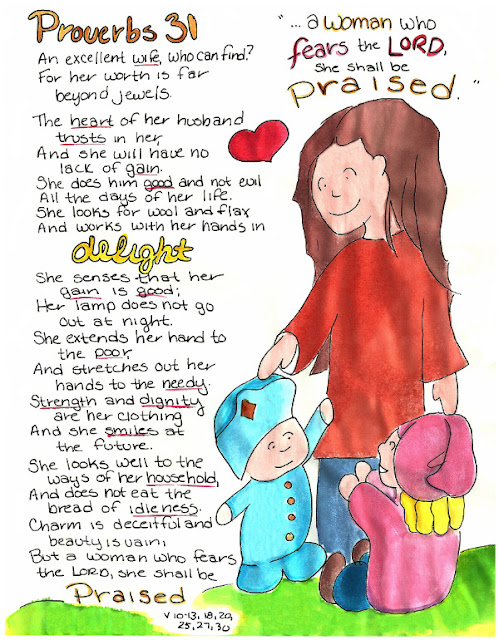 Proverbs 31
An excellent wife, who can find?
For her worth is far
beyond jewels.
The heart of her husband
trusts in her,
And she will have no
lack of gain.
She does him good and not evil
All the days of her life.
She looks for wool and flax
And works with her hands in
delight
She senses that her
gain is good;
Her lamp does not go
out at night.
She extends her hand to
the poor,
And stretches out her
hands to the needy.
Strength and dignity
are her clothing
And she smiles at
the future.
She looks well to the
ways of her household,
And does not eat the
bread of idleness.
Charm is deceitful and
beauty is vain;
But a woman who fears
the LORD, she shall be
Praised
v 10-13, 18, 20,
25, 27, 30
"...a woman who
fears the LORD,
she shall be
praised."